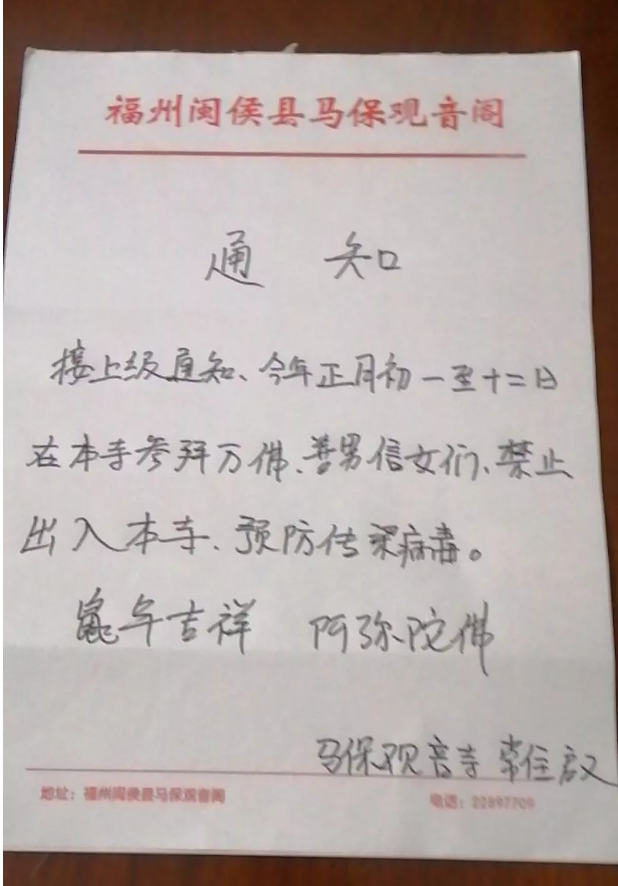 福州闽侯县马保观音阁
通 知
接上级通知、今年正月初一至十二日
在本寺参拜万佛、善男信女们、禁止
出入本寺、预防传染病毒。
鼠年吉祥 阿弥陀佛
马保观音寺 常住 启
地址：福州闽侯县马保观音阁 电话：22897709